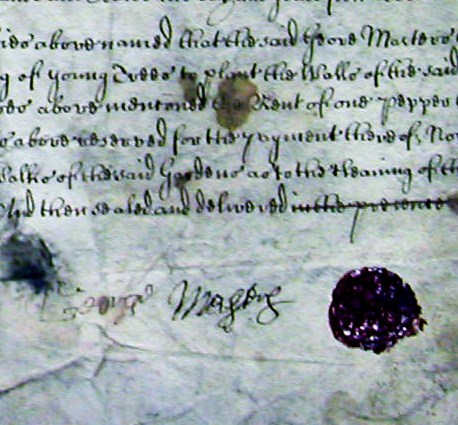 above named that the said Geore Masters
of young Trees to plant the Walls of the said
above mentoned the Rent of one pepper
above reserved for the payment there of, No
Walks of the said Gardens as to the cleaning of th
And then sealed and delivered in the presence
George Masters